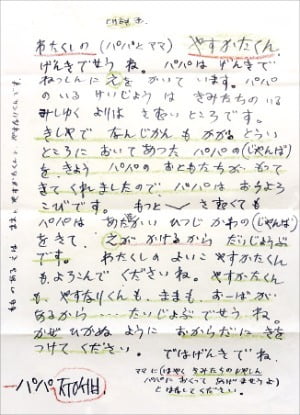 わたくしの(パパとママ)やすかたくん.
げんきでせうね。パパはげんきで
ねっしんにえをかいています。パパ
のいるけいじょうはきみたちのいる
みしゆくよりはさむいところです。
きしやでなんじかんもかかるとうい
ところにおいてあつたパパの(じゃんぱ)
を、きようパパのおともたちがもつて
きてくれましたのでパパはおうよろ
こびです。もっとさむくても
パパはあたたかいひつじかわの(じゃんぱ)
をきて、えがかけるからだいじょうぶ
です。わたくしのよいこやすかたくん
も、よろこんでくださいね。やすかたくん
も、やすなりくんも、ままも、おーばが
あるから……たいじょぶでせうね。
かぜひかぬようにおからだにきを
つけてください。ではげんきでね。
ママに(はやくきみたちのしやしん
パパにおくってあげませうよ)
とはなしてください。
パパ